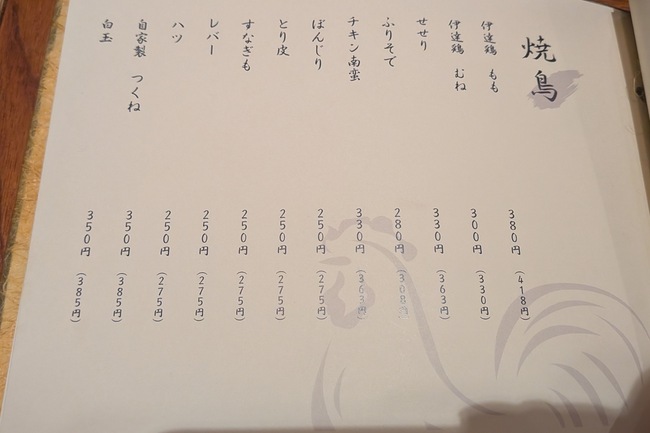 焼鳥
伊達鶏 もも 380円 (418円)
伊達鶏 むね 300円 (330円)
せせり 330円 (363円)
ふりそで 280円 (308円)
チキン南蛮 330円 (363円)
ぼんじり 250円 (275円)
とり皮 250円 (275円)
すなぎも 250円 (275円)
レバー 250円 (275円)
ハツ 250円 (275円)
自家製 つくね 350円 (385円)
白玉 350円 (385円)